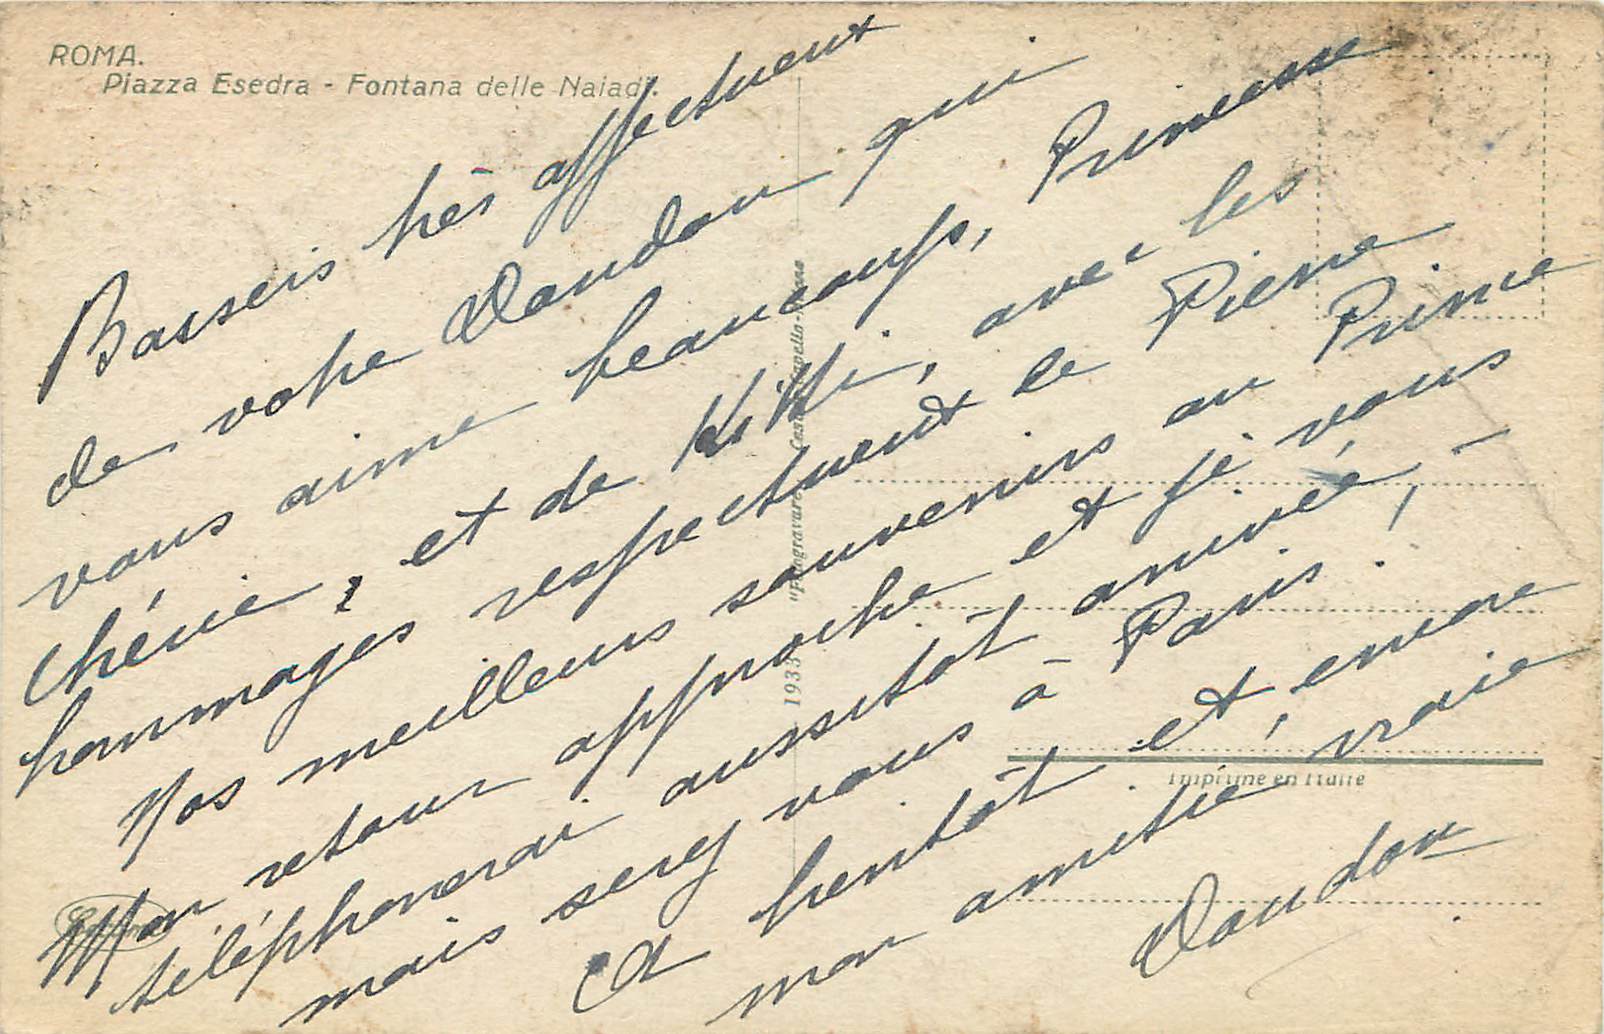 ROMA.
Piazza Esedra - Fontana delle Naiadi.
Basseis très affectuent
de votre Doudou qui
vous aime beaucoup, Princesse
chérie, et de Kitti, avec les
hommages respectuent de Pierre
Nos meilleurs souvenirs au Prince
Mon retour approche et je vous
téléphonerai aussitôt arrivée, -
mais serez vous à Paris !
A bientôt et, encore
mon amitié vraie
Doudou
1933
Imprimé en Italie